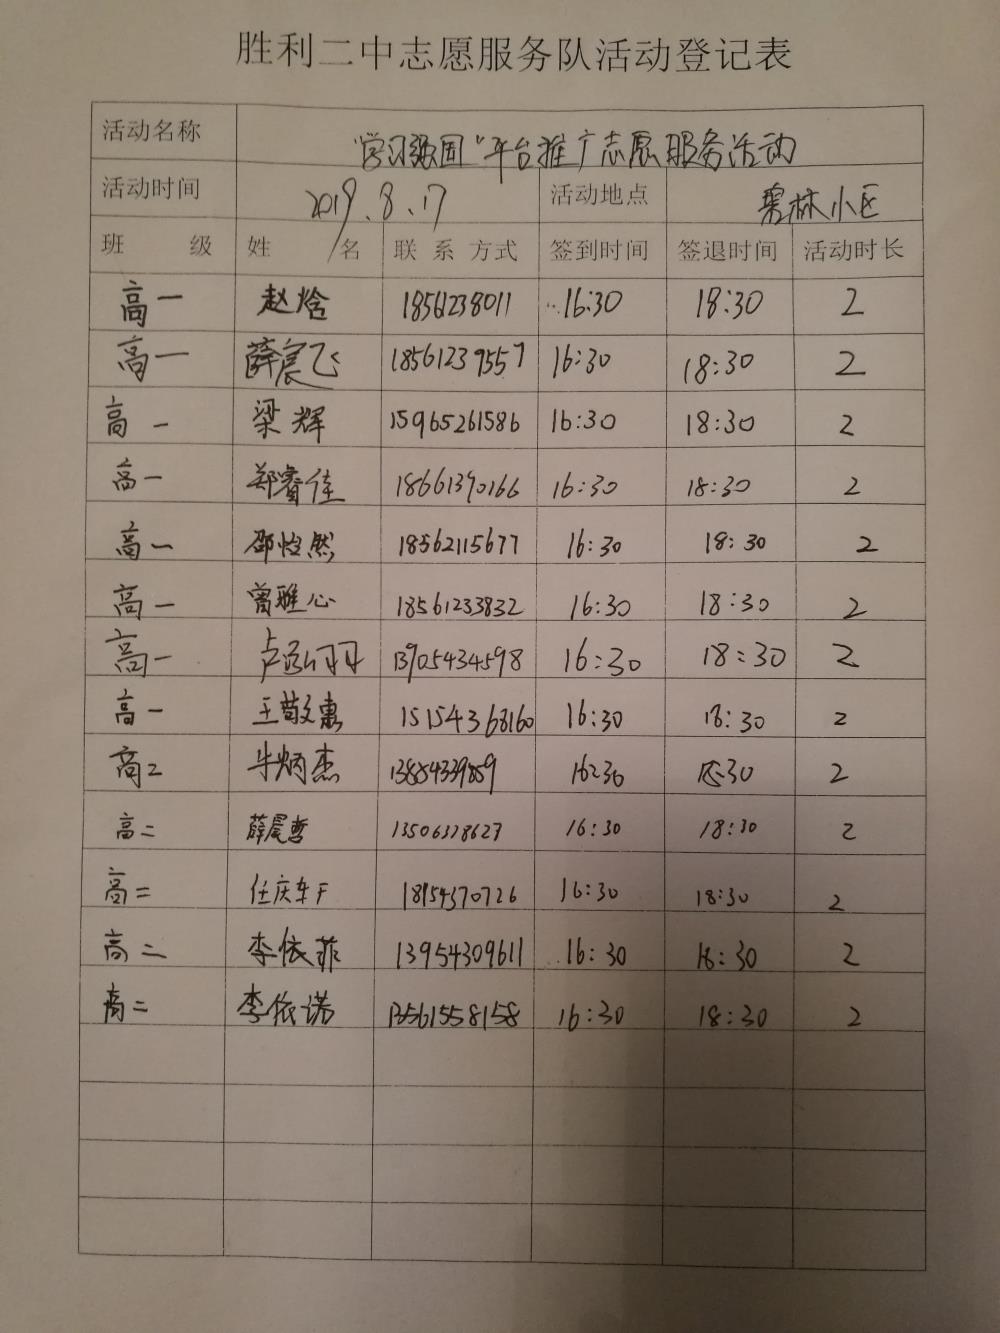 胜利二中志愿服务队活动登记表
活动名称 "学习强国"平台推广志愿服务活动
活动时间 2019.8.17 活动地点 林小区
班 级 姓 名 联 系 方式 签到时间 签退时间 活动时长
高一 赵焓 1856238011 16:30 18:30 2
高一 薛宸飞 18561239557 16:30 18:30 2
高一 梁辉 15965261586 16:30 18:30 2
高一 郑睿佳 18661390166 16:30 18:30 2
高一 邵怡然 18562115677 16:30 18:30 2
高一 曾雅心 18561233832 16:30 18:30 2
高一 卢 13905434598 16:30 18:30 2
高一 王敬惠 15154368160 16:30 18:30 2
高二 牛炳杰 13854339859 16:30 18:30 2
高二 薛晨哲 13506378627 16:30 18:30 2
高二 任庆 18154370726 16:30 18:30 2
高二 李依菲 13954309611 16:30 18:30 2
高二 李依诺 13561558158 16:30 18:30 2